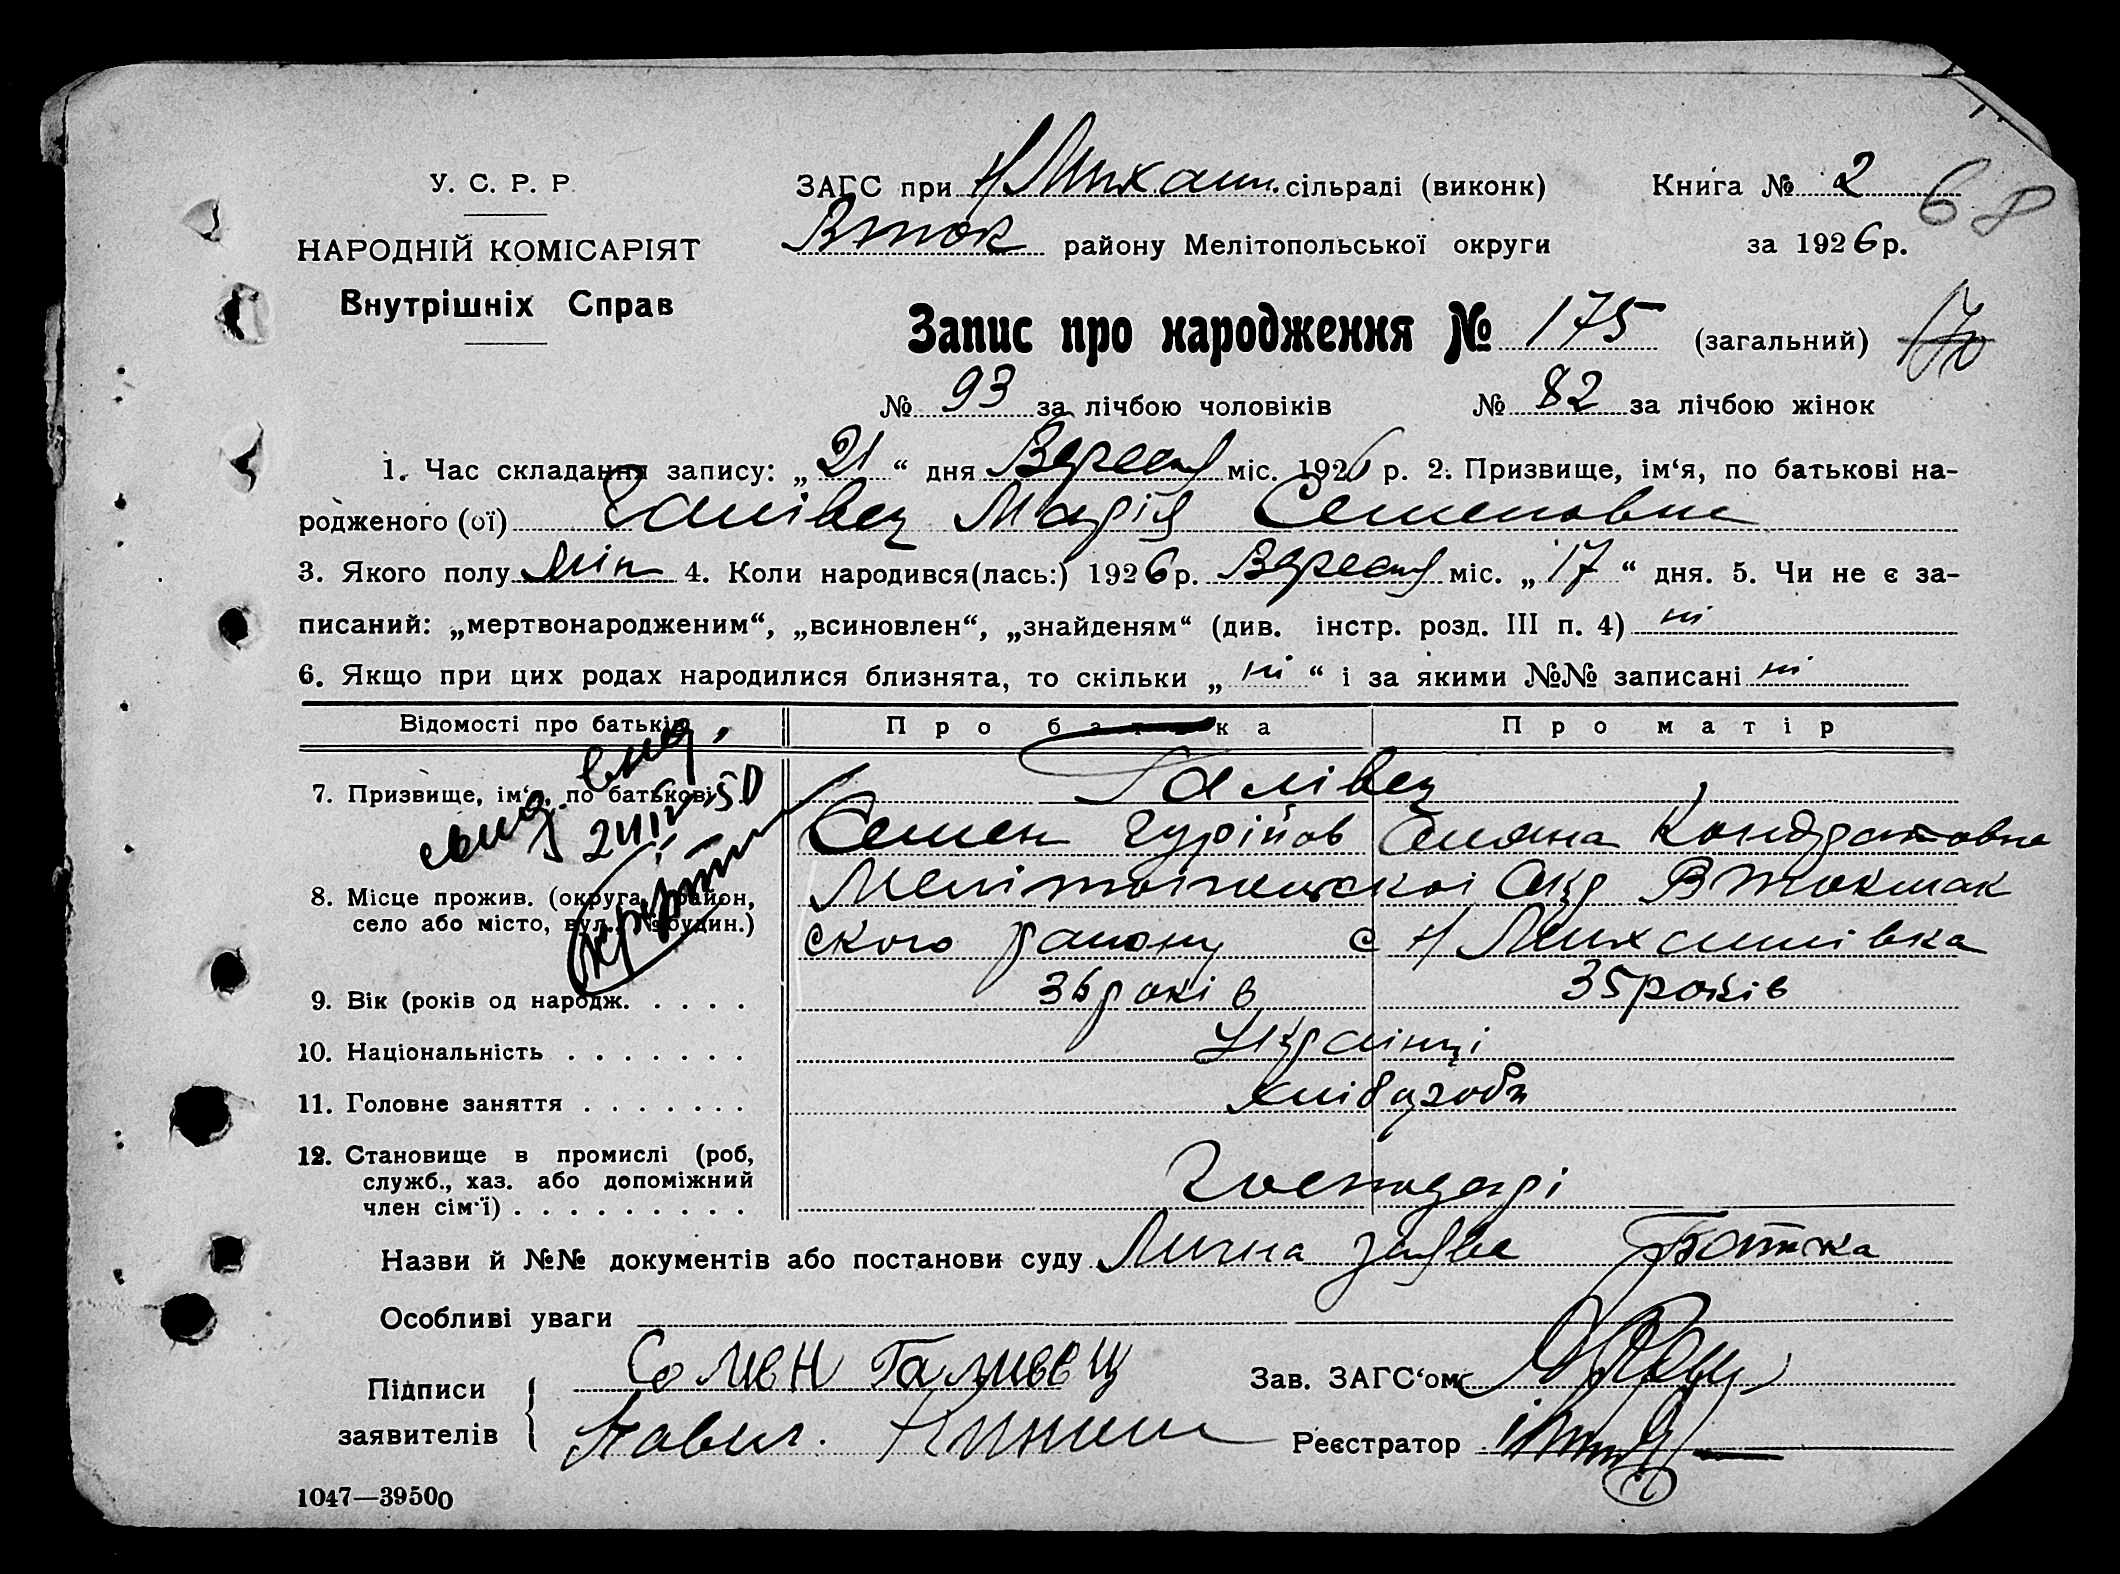 У. С. Р. Р.
НАРОДНІЙ КОМІСАРІЯТ
Внутрішніх Справ
ЗАГС при Н Михайл. сільраді (виконк)
Вток району Мелітопольської округи
Книга № 2
68
за 1926 р.
Запис про народження № 175 (загальний) 170
№ 93 за лічбою чоловіків № 82 за лічбою жінок
1. Час складання запису: „21“ дня Вересня міс. 1926 р. 2. Призвище, ім‘я, по батькові на-
родженого (ої) Галівец Марія Семеновна
3. Якого полу жін 4. Коли народився(лась:) 1926 р. Вересня міс. „17“ дня. 5. Чи не є за-
писаний: „мертвонародженим“, „всиновлен“, „знайденям“ (див. інстр. розд. III п. 4) ні
6. Якщо при цих родах народилися близнята, то скільки „ні“ і за якими №№ записані ні
Відомості про батьків Про батька Про матір
7. Призвище, ім‘я, по батькові Галівец
Семен Гурійов Кондратовна
8. Місце прожив. (округа, район, село або місто, вул., № будин.) Мелітопільської Окр Втокмак
ского району с Н Михайлівка
9. Вік (років од народж. . . . . 36 років 35 років
10. Національність . . . . . . . Українці
11. Головне заняття . . . . . . . хлібороби
12. Становище в промислі (роб,
служб., хаз. або допоміжний
член сім‘ї) . . . . . . . . . Господарі
Назви й №№ документів або постанови суду Лична заява Батька
Особливі уваги
Підписи
заявителів
Семен Галивец
Зав. ЗАГС‘ом
Реєстратор
1047—39500